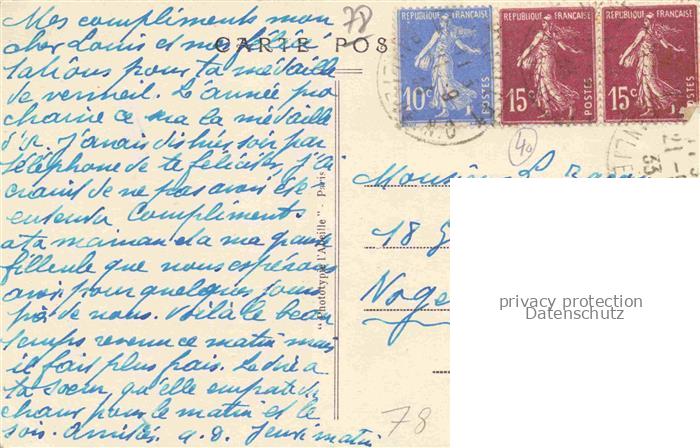 Mes compliments mon
cher Louis et mes félici
tations pour ta médaille
de vermeil. L'année pro
chaine ce sera la médaille
d'or. J'avais dit hier soir par
téléphone de te féliciter, j'ai
craint de ne pas avoir été
entendu. Compliments
a ta maman et a ma grande
filleule que nous espérons
avoir pour quelques jours
près de nous. Voilà le beau
temps revenu ce matin mais
il fait plus frais. Le dire a
ta sœur, qu'elle emporte du
chaud pour le matin et le
soir. Amitiés. a.d. Jeudi matin
78
CARTE POS
"Phototypie l'Abeille" - Paris
REPUBLIQUE FRANÇAISE
10c
POSTES
REPUBLIQUE FRANÇAISE
15c
POSTES
REPUBLIQUE FRANÇAISE
15c
POSTES
40
21
33
Monsieur L.
18
Noge
privacy protection
Datenschutz
78